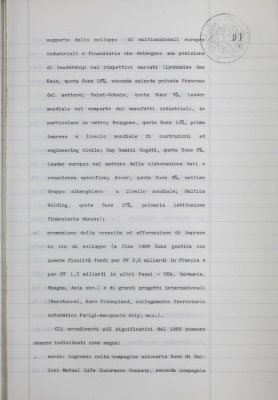 supporto dello sviluppo di multinazionali europee
industriali e finanziarie che detengono una posizione
di leadership nei rispettivi mercati (Lyonnaise des
Eaux, quota Suez 18%, seconda azienda privata francese
del settore; Saint-Gobain, quota Suez 5%, leader
mondiale nel comparto dei manufatti industriali, in
particolare in vetro; Bouygues, quota Suez 13%, prima
impresa a livello mondiale di costruzioni ed
engineering civile; Cap Gemini Sogeti, quota Suez 6%,
leader europeo nel settore della elaborazione dati e
consulenza specifica; Accor, quota Suez 4%, settimo
Gruppo alberghiero a livello mondiale; Baltica
Holding, quota Suez 27%, primaria istituzione
finanziaria danese);
- promozione della crescita ed affermazione di imprese
in via di sviluppo (a fine 1989 Suez gestiva con
queste finalità fondi per FF 2,5 miliardi in Francia e
per FF 1,5 miliardi in altri Paesi - USA, Germania,
Spagna, Asia ecc.) e di grandi progetti internazionali
(Eurotunnel, Euro Disneyland, collegamento ferroviario
automatico Parigi-Aeroporto Orly, ecc.).
Gli accadimenti più significativi del 1989 possono
essere individuati come segue:
- marzo: ingresso nella compagine azionaria Suez di Dai-
Ichi Mutual Life Insurance Company, seconda compagnia